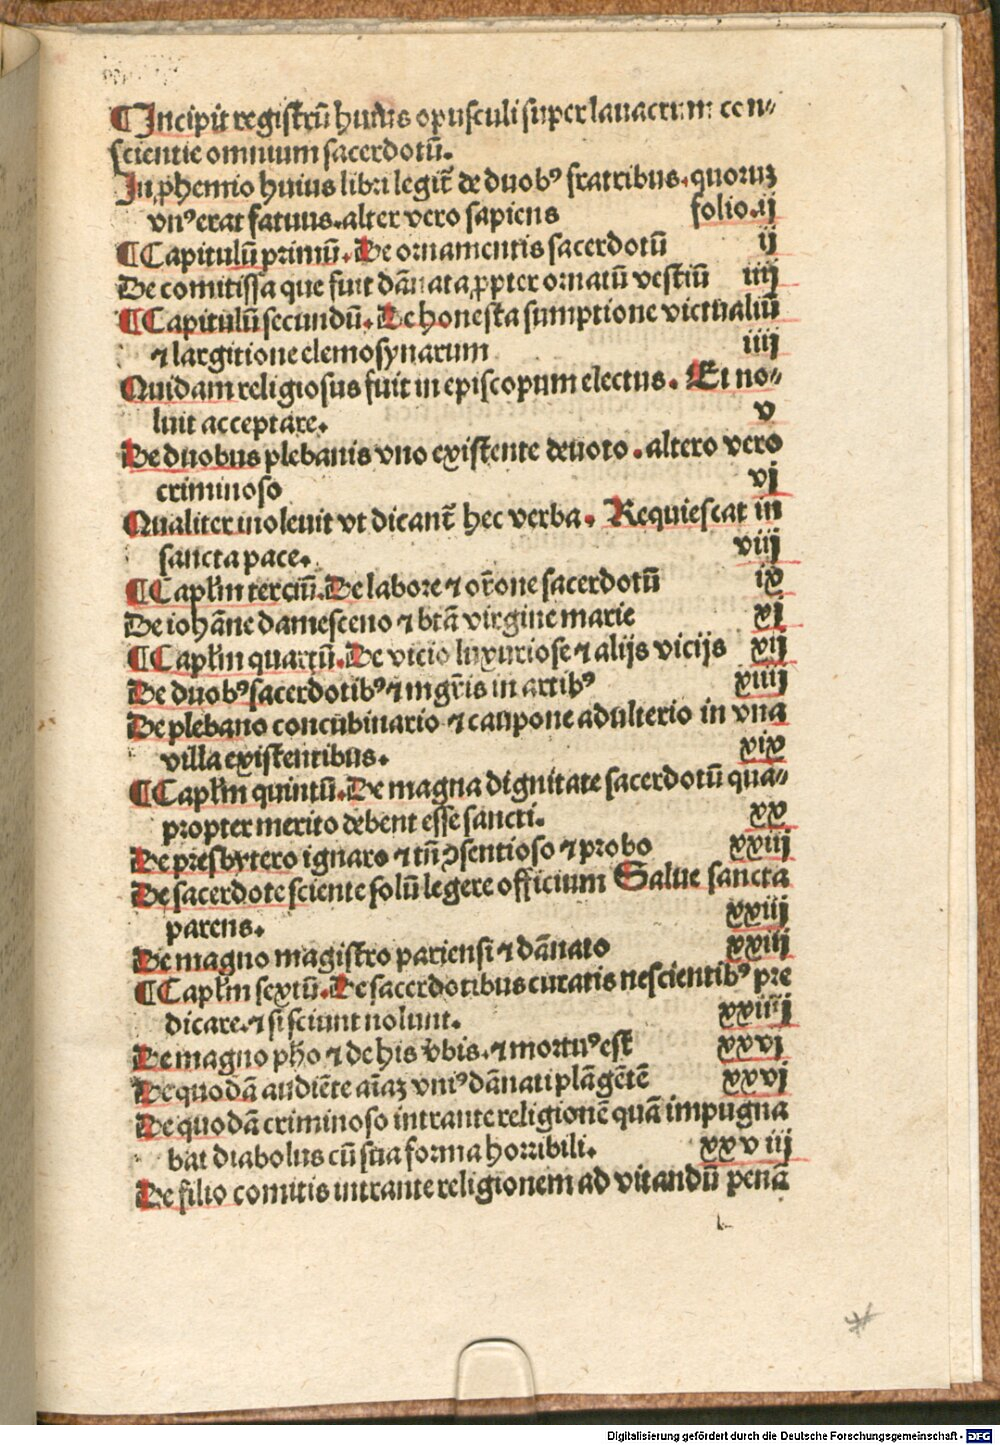 ¶Incipit registrū huius opusculi super lauacrum con⸗
scientie omnium sacerdotū.
In phemio huius libri legit̄ de duobꝰ fratribus. quoruꝫ
vnꝰ erat fatuus. alter vero sapiens folio.ij
¶Capitulū primū. De ornamentis sacerdotū ij
De comitissa que fuit dānata ꝓpter ornatū vestiū iiij
¶Capitulū secundū. De honesta sumptione victualiū
⁊ largitione elemosynarum iiij
Quidam religiosus fuit in episcopum electus. Et no⸗
luit acceptare. v
De duobus plebanis vno existente deuoto. altero vero
criminoso vj
Qualiter inoleuit vt dicant̄ hec verba. Requiescat in
sancta pace. viij
¶Capłm terciū. De labore ⁊ or̄one sacerdotū ix
De iohāne damesceno ⁊ btā virgine marie xj
¶Capłm quartū. De vicio luxuriose ⁊ alijs vicijs xij
De duobꝰ sacerdotibꝰ ⁊ mgr̄is in artibꝰ xiiij
De plebano concubinario ⁊ caupone adulterio in vna
villa existentibus. xix
¶Capłm quintū. De magna dignitate sacerdotū qua⸗
propter merito debent esse sancti. xx
De presbytero ignaro ⁊ tn̄ ꝯsentioso ⁊ probo xxiij
De sacerdote sciente solū legere officium Salue sancta
parens. xxiij
De magno magistro pariensi ⁊ dānato xxiij
¶Capłm sextū. De sacerdotibus curatis nescientibꝰ pre
dicare. ⁊ si sciunt nolunt. xxiiij
De magno pho ⁊ de his v̄bis. ⁊ mortuꝰ est xxvj
De quodā audiēte aīaꝫ vniꝰ dānati plāgētē xxvj
De quodā criminoso intrante religionē quā impugna
bat diabolus cū sua forma horribili. xxv iij
De filio comitis intrante religionem ad vitandū penā
Digitalisierung gefördert durch die Deutsche Forschungsgemeinschaft - DFG